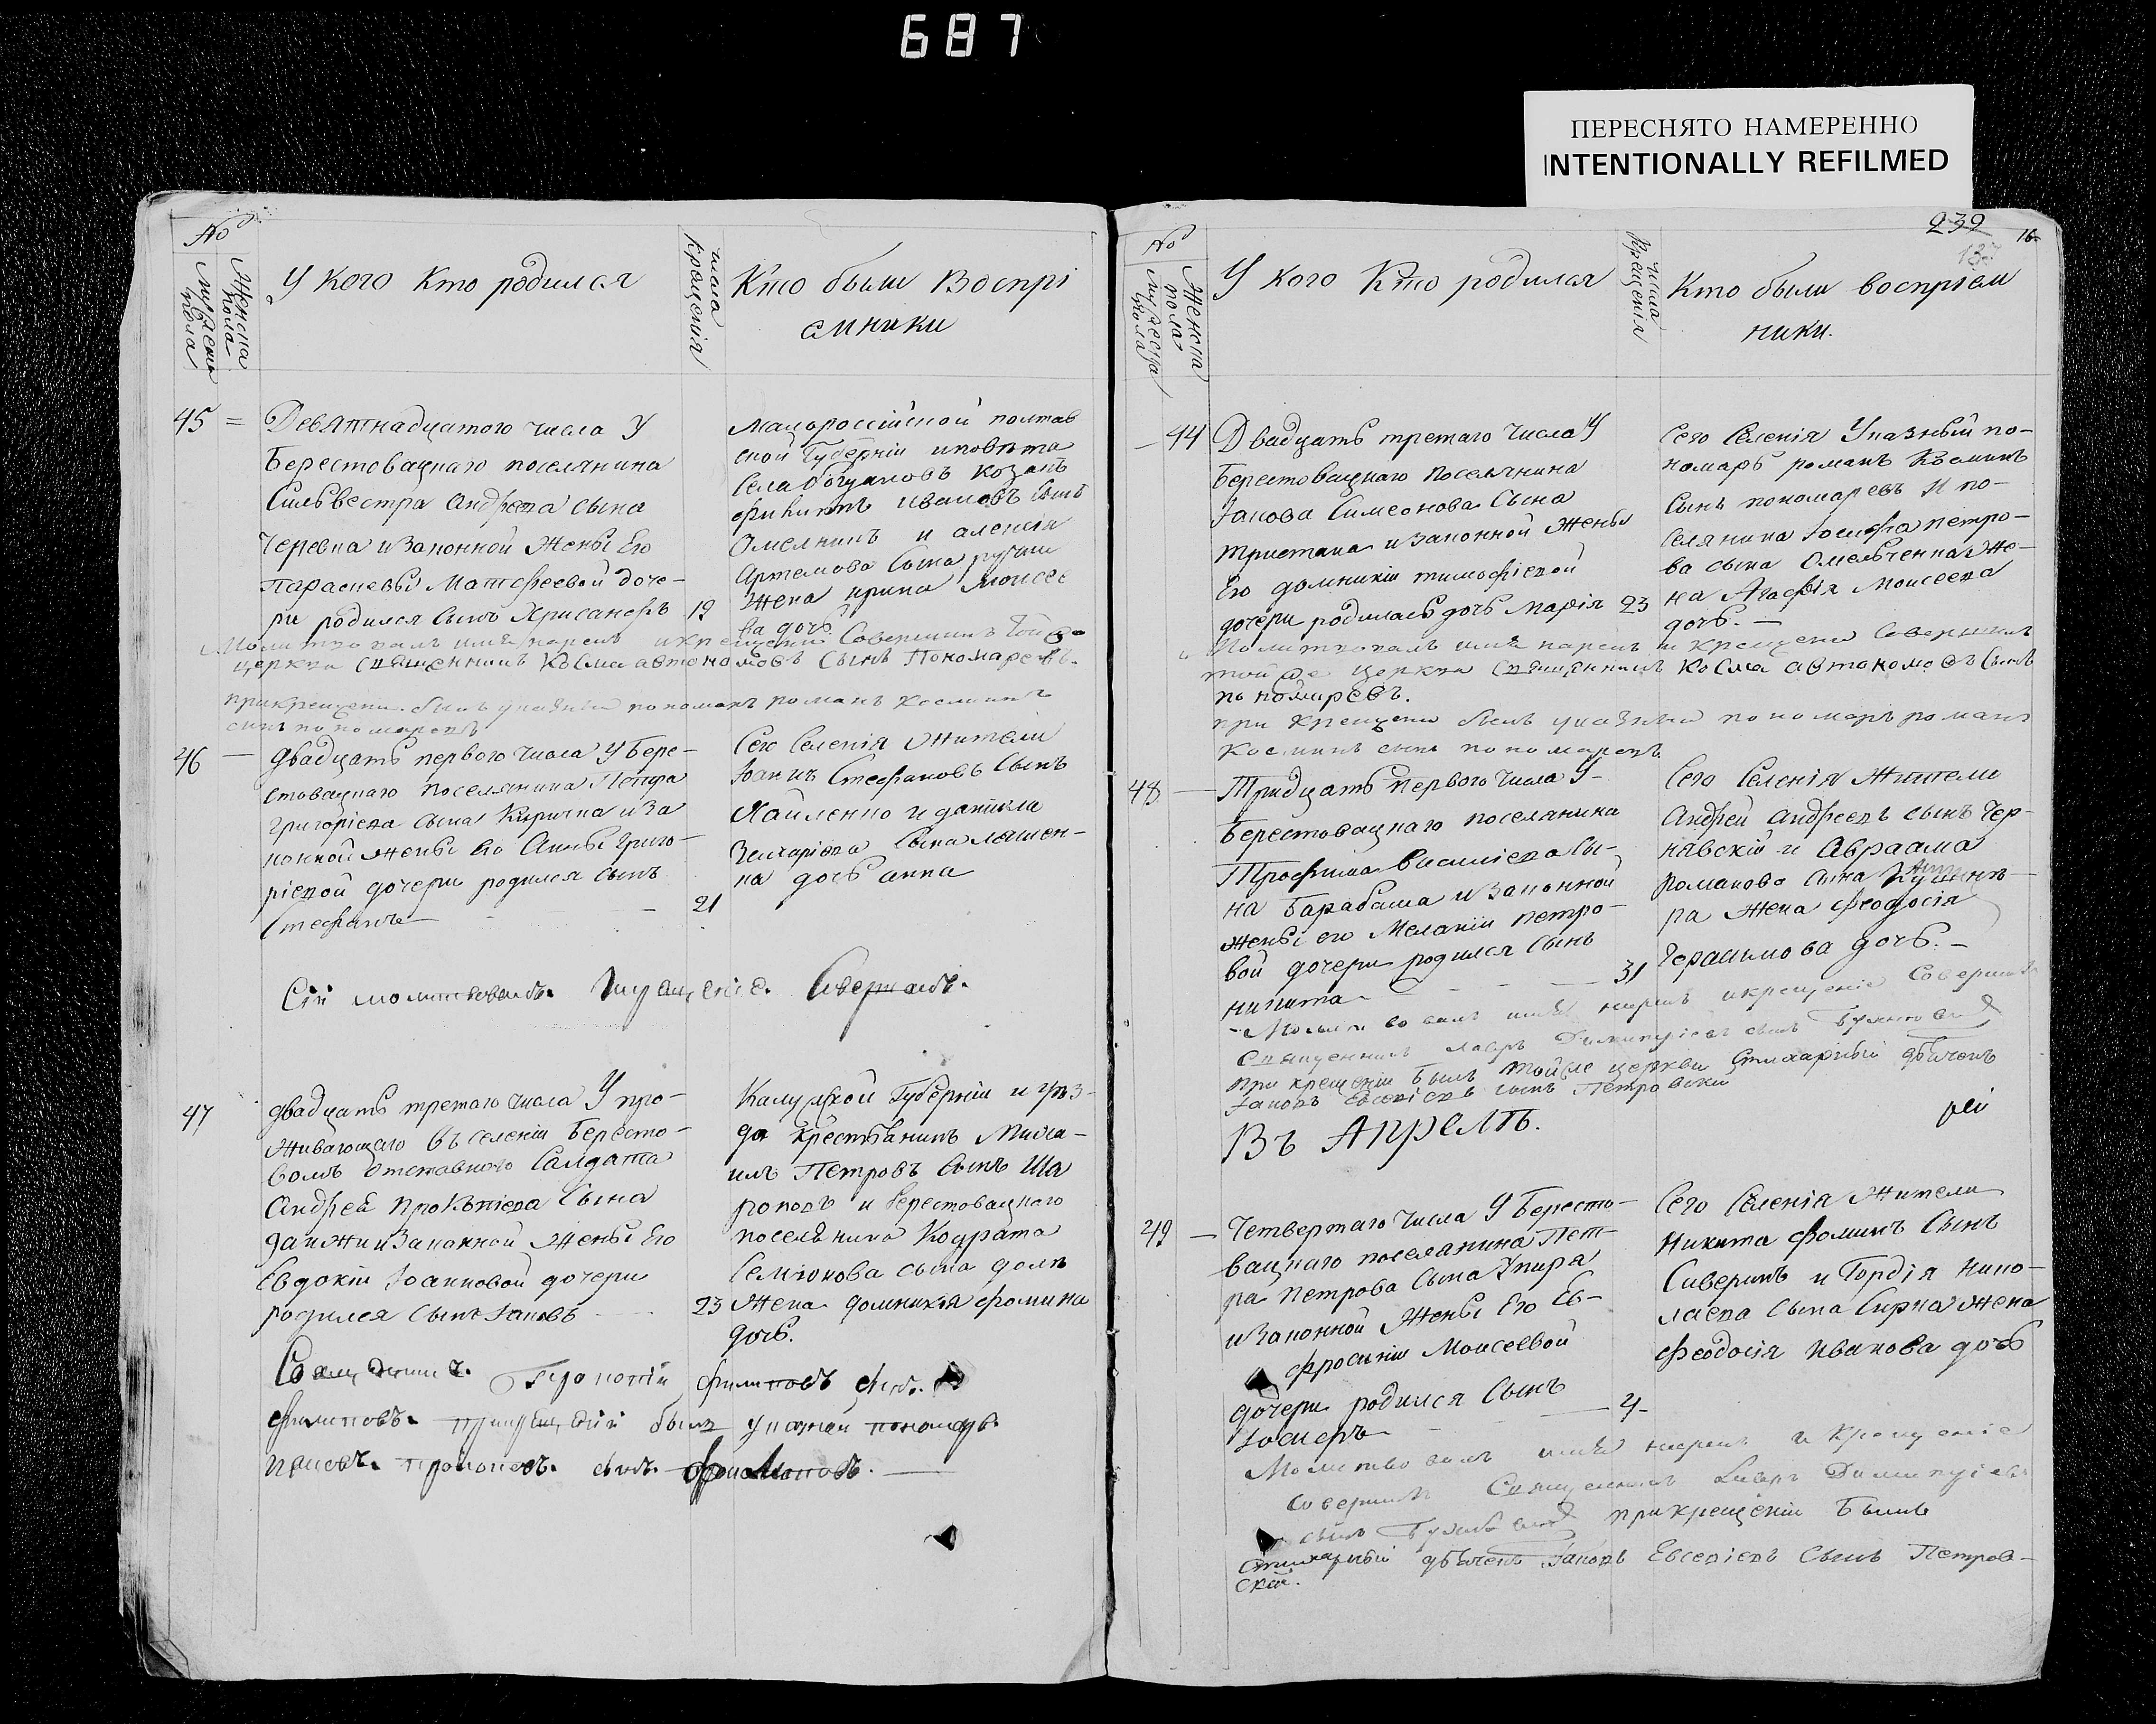 687
ПЕРЕСНЯТО НАМЕРЕННО
INTENTIONALLY REFILMED
№
Мужеска пола
Женска пола
У кого Кто родился
числа Крещенія
Кто были Воспрі
емники
45 =
Девятнадцатого числа У
Берестовацкаго поселянина
Сильвестра Андреева сына
Черевка и Законной Жены Его
Параскевы Матфеевой доче-
ри родился Сынъ Хрисанфъ
19
Малороссійской полтав
ской Губерніи и повѣта
Села богдановъ козакъ
Ивановъ Сынъ
и алексія
Артемова Сына
Жена ирина Моисее
ва дочь
Молитвовалъ имя нарекъ и крещение Совершилъ Той же
церкви священникъ Косма автономовъ сынъ Пономаревъ.
при крещении былъ указный пономарь романъ Косминъ
сынъ пономаревъ
46 —
двадцать первого числа У Бере-
стовацкаго поселянина Петра
григоріева сына Киричка и За
конной жены его Анны Григо-
ріевой дочери родился Сынъ
Стефанъ —
21
Сего Селенія Жители
Іоаннъ Стефановъ Сынъ
Хайленко и даніила
Захаріева Сына ляшен-
ка дочь анна
Сій молитвовалъ. Крещеніе. Совершалъ.
47
двадцать третого числа У про-
живающаго въ селеніи Бересто-
вомъ отставного Салдата
Андрея Прокопіева Сына
и Законной Жены Его
Евдокіи Іоанновой дочери
родился Сынъ Іаковъ
23
Калужской Губерніи и уѣз-
да крестьянинъ Миха-
илъ Петровъ Сынъ Ша
роновъ и Берестовацкаго
поселянина Кодрата
Семіонова сына
Жена домникія фомина
дочь.
Священникъ. Прокопій филиповъ сынъ.
филиповъ. при крещеній былъ указной пономарь.
сынъ.
239
16
№
Мужеска пола
Женска пола
У кого Кто родился
числа Крещенія
Кто были воспріем
ники.
— 44
Двадцать третаго числа У
Берестовацкаго Поселянина
Іакова Симеонова Сына
Тристана и Законной Жены
Его домникіи тимофіевой
дочери родилась дочь Марія
23
Сего Селенія Указный по-
номарь романъ Косминъ
Сынъ пономаревъ И по-
селянина Іосифа петро-
ва сына Омельченка Же-
на Агафія Моисеева
дочь. —
Молитвовалъ имя нарекъ и крещение Совершилъ
той же церкви священникъ Косма автономовъ Сынъ
пономаревъ.
при крещении былъ указный пономарь романъ
Косминъ сынъ пономаревъ
48 —
Тридцать Первого числа У-
Берестовацкаго поселянина
Трофима Василіева Сы-
на Барабаша и Законной
жены его Меланіи петро-
вой дочери родился Сынъ
никита —
31
Сего Селенія Жители
Андрей Андреевъ сынъ Чер-
нявскій и Авраама
романова сына
жена Феодосія
Герасимова дочь. —
Молитвовалъ имя нарекъ и крещеніе Совершилъ
Священникъ лавръ Димитріевъ сынъ
При крещеніи былъ тойже церкви Стихарный дьячокъ
Іаковъ Евсевіевъ сынъ Петровскій
Въ Апрелѣ.
49 —
Четвертаго числа У Бересто-
вацкаго поселянина Пет-
ра Петрова Сына
и Законной Жены Его Ев-
фросиніи Моисеевой
дочери родился Сынъ
Іосифъ —
4
Сего Селенія Жители
Никита фоминъ Сынъ
Сиверинъ и Гордія Нико-
лаева Сына Сирка Жена
Феодосія Иванова дочь
Молитвовалъ имя нарекъ и Крещеніе
Совершилъ Священникъ Лавръ Димитріевъ
сынъ при крещеніи Былъ
Стихарный дьячекъ Іаковъ Евсевіевъ Сынъ Петров-
скій.